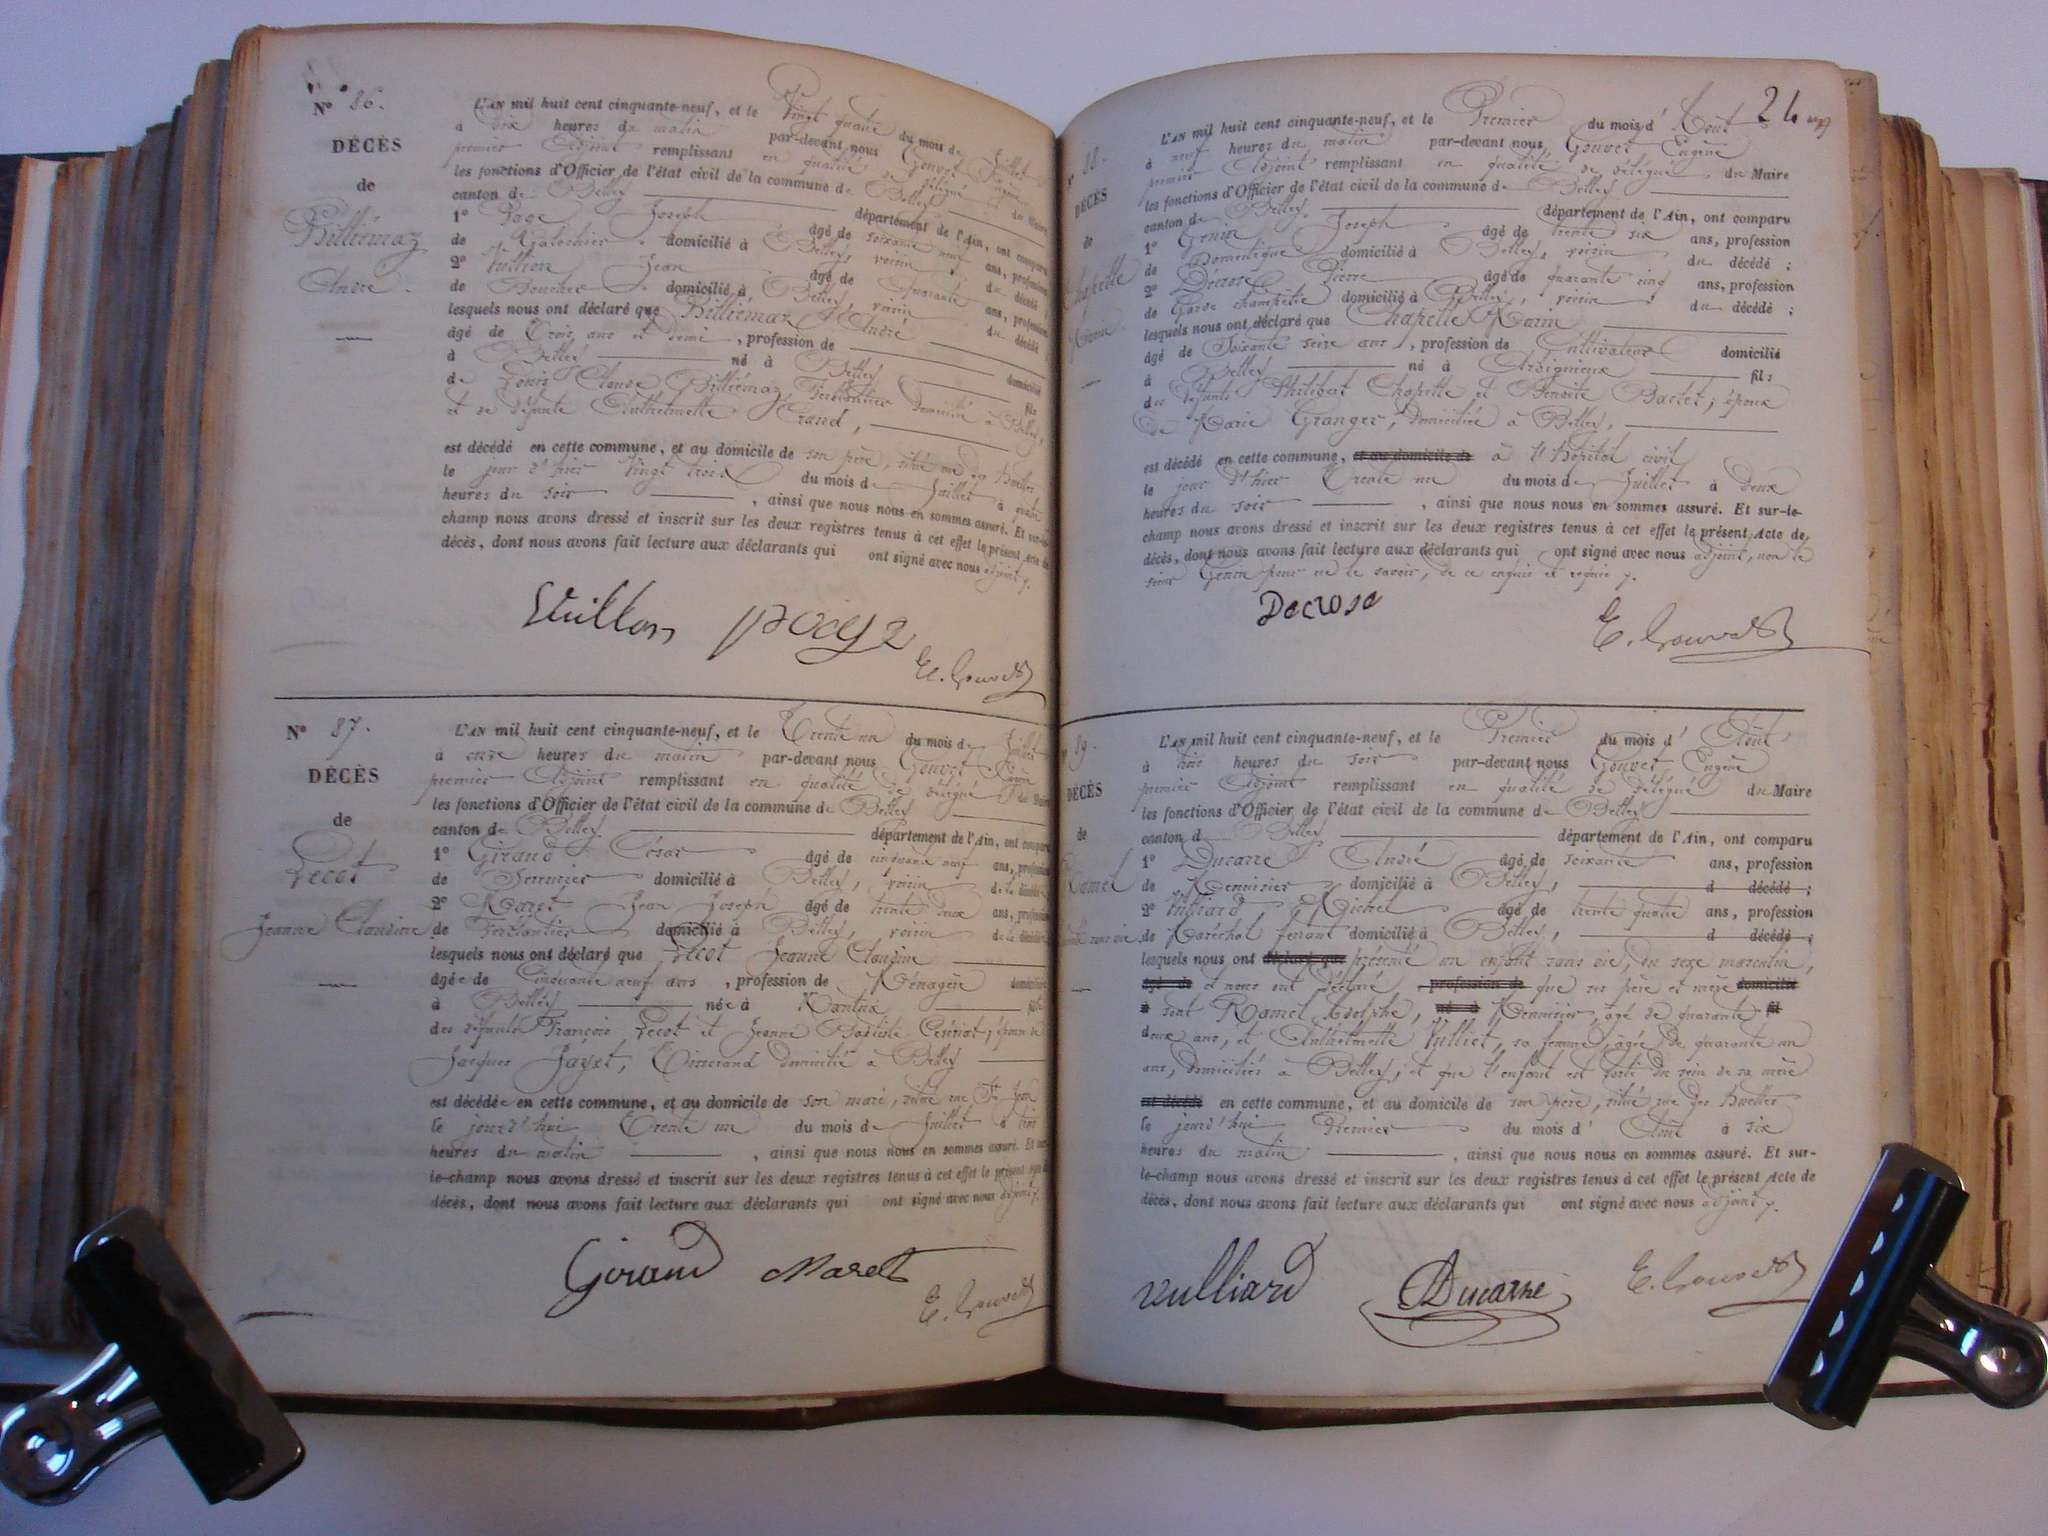 N° 86.
DÉCÈS
de
Billiémaz
André.
L'AN mil huit cent cinquante-neuf, et le Vingt quatre du mois de Juillet
à dix heures du matin par-devant nous Gouvet Eugène
premier Adjoint remplissant en qualité de délégué du Maire
les fonctions d'Officier de l'état civil de la commune de Belley
canton de Belley département de l'Ain, ont comparu
1° Page Joseph âgé de soixante neuf ans, profession
de Galochier domicilié à Belley, voisin du décédé
2° Vuillon Jean âgé de Quarante ans, profession
de Boucher domicilié à Belley, voisin du décédé
lesquels nous ont déclaré que Billiémaz André
âgé de Trois ans et demi, profession de domicilié
à Belley né à Belley fils
de Louis Claude Billiémaz, Ferblantier domicilié à Belley,
et de défunte Anthelmette Grand,
est décédé en cette commune, et au domicile de son père, situé rue des Barettes
le jour d'hier Vingt trois du mois de Juillet à quatre
heures du soir, ainsi que nous nous en sommes assuré. Et sur-le-
champ nous avons dressé et inscrit sur les deux registres tenus à cet effet le présent Acte de
décès, dont nous avons fait lecture aux déclarants qui ont signé avec nous adjoint.
Vuillon E. Gouvet
N° 87.
DÉCÈS
de
Lecot
Jeanne Claudine
L'AN mil huit cent cinquante-neuf, et le Trente un du mois de Juillet
à onze heures du matin par-devant nous Gouvet Eugène
premier Adjoint remplissant en qualité de délégué du Maire
les fonctions d'Officier de l'état civil de la commune de Belley
canton de Belley département de l'Ain, ont comparu
1° Giraud César âgé de cinquante neuf ans, profession
de domicilié à Belley, voisin de la décédée
2° Maret Jean Joseph âgé de trente deux ans, profession
de Ferblantier domicilié à Belley, voisin de la décédée
lesquels nous ont déclaré que Lecot Jeanne Claudine
âgée de Cinquante neuf ans, profession de Ménagère domiciliée
à Belley née à Nantua fille
des défunts François Lecot et Jeanne Baptiste, épouse de
Jacques Jayet, Tisserand domicilié à Belley
est décédée en cette commune, et au domicile de son mari, situé rue St Jean
le jourd'hui Trente un du mois de Juillet à trois
heures du matin, ainsi que nous nous en sommes assuré. Et sur-
le-champ nous avons dressé et inscrit sur les deux registres tenus à cet effet le présent Acte de
décès, dont nous avons fait lecture aux déclarants qui ont signé avec nous adjoint.
Giraud Maret E. Gouvet
24
88.
DÉCÈS
de
Chapelle
Marin
L'AN mil huit cent cinquante-neuf, et le Premier du mois d'Août
à neuf heures du matin par-devant nous Gouvet Eugène
premier Adjoint remplissant en qualité de délégué du Maire
les fonctions d'Officier de l'état civil de la commune de Belley
canton de Belley département de l'Ain, ont comparu
1° Genin Joseph âgé de trente six ans, profession
de Domestique domicilié à Belley, voisin du décédé ;
2° Décrose Pierre âgé de quarante cinq ans, profession
de Garde champêtre domicilié à Belley, voisin du décédé ;
lesquels nous ont déclaré que Chapelle Marin
âgé de Soixante seize ans, profession de Cultivateur domicilié
à Belley né à Arbignieux fils
des défunts Philibert Chapelle et Benoite Bactet, époux
de Marie Granger, domiciliée à Belley,
est décédé en cette commune, et au domicile de à l'Hôpital civil
le jour d'hier Trente un du mois de Juillet à deux
heures du soir, ainsi que nous nous en sommes assuré. Et sur-le-
champ nous avons dressé et inscrit sur les deux registres tenus à cet effet le présent Acte de
décès, dont nous avons fait lecture aux déclarants qui ont signé avec nous adjoint, non le
sieur Genin pour ne le savoir, de ce enquis et requis.
Decrose E. Gouvet
89.
DÉCÈS
de
Ramel
L'AN mil huit cent cinquante-neuf, et le Premier du mois d'Août
à trois heures du soir par-devant nous Gouvet Eugène
premier Adjoint remplissant en qualité de délégué du Maire
les fonctions d'Officier de l'état civil de la commune de Belley
canton d Belley département de l'Ain, ont comparu
1° Ducarre André âgé de soixante ans, profession
de Menuisier domicilié à Belley, d décédé ;
2° Vulliard Michel âgé de trente quatre ans, profession
de Maréchal ferrant domicilié à Belley, d décédé ;
lesquels nous ont déclaré que présenté un enfant sans vie, du sexe masculin,
âgé de et nous ont déclaré profession de que ses père et mère domicilié
à sont Ramel Adolphe, né à Menuisier, âgé de quarante fil
deux ans, et Anthelmette Vulliet, sa femme, âgée de quarante un
ans, domiciliés à Belley, et que l'enfant est sorti du sein de sa mère
est décédé en cette commune, et au domicile de son père, situé rue des Barettes
le jourd'hui Premier du mois d'Août à six
heures du matin, ainsi que nous nous en sommes assuré. Et sur-
le-champ nous avons dressé et inscrit sur les deux registres tenus à cet effet le présent Acte de
décès, dont nous avons fait lecture aux déclarants qui ont signé avec nous adjoint.
Vulliard Ducarre E. Gouvet